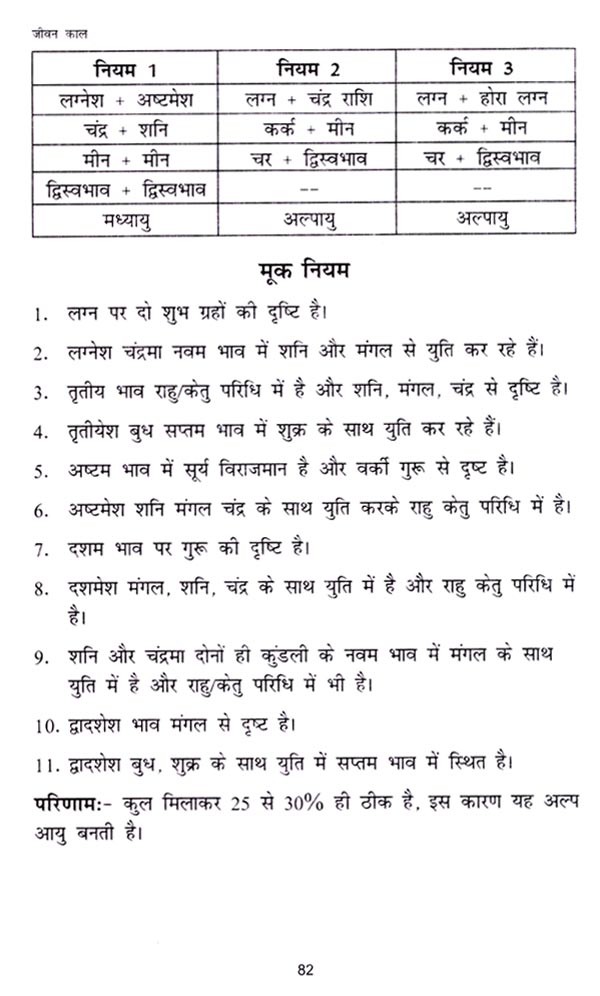 जीवन काल
नियम 1 नियम 2 नियम 3
लग्नेश + अष्टमेश लग्न + चंद्र राशि लग्न + होरा लग्न
चंद्र + शनि कर्क + मीन कर्क + मीन
मीन + मीन चर + द्विस्वभाव चर + द्विस्वभाव
द्विस्वभाव + द्विस्वभाव -- --
मध्यायु अल्पायु अल्पायु
मूक नियम
1. लग्न पर दो शुभ ग्रहों की दृष्टि है।
2. लग्नेश चंद्रमा नवम भाव में शनि और मंगल से युति कर रहे हैं।
3. तृतीय भाव राहु/केतु परिधि में है और शनि, मंगल, चंद्र से दृष्टि है।
4. तृतीयेश बुध सप्तम भाव में शुक्र के साथ युति कर रहे हैं।
5. अष्टम भाव में सूर्य विराजमान है और वर्की गुरू से दृष्ट है।
6. अष्टमेश शनि मंगल चंद्र के साथ युति करके राहु केतु परिधि में है।
7. दशम भाव पर गुरू की दृष्टि है।
8. दशमेश मंगल, शनि, चंद्र के साथ युति में है और राहु केतु परिधि में
है।
9. शनि और चंद्रमा दोनों ही कुंडली के नवम भाव में मंगल के साथ
युति में है और राहु/केतु परिधि में भी है।
10. द्वादशेश भाव मंगल से दृष्ट है।
11. द्वादशेश बुध, शुक्र के साथ युति में सप्तम भाव में स्थित है।
परिणाम:- कुल मिलाकर 25 से 30% ही ठीक है, इस कारण यह अल्प
आयु बनती है।
82